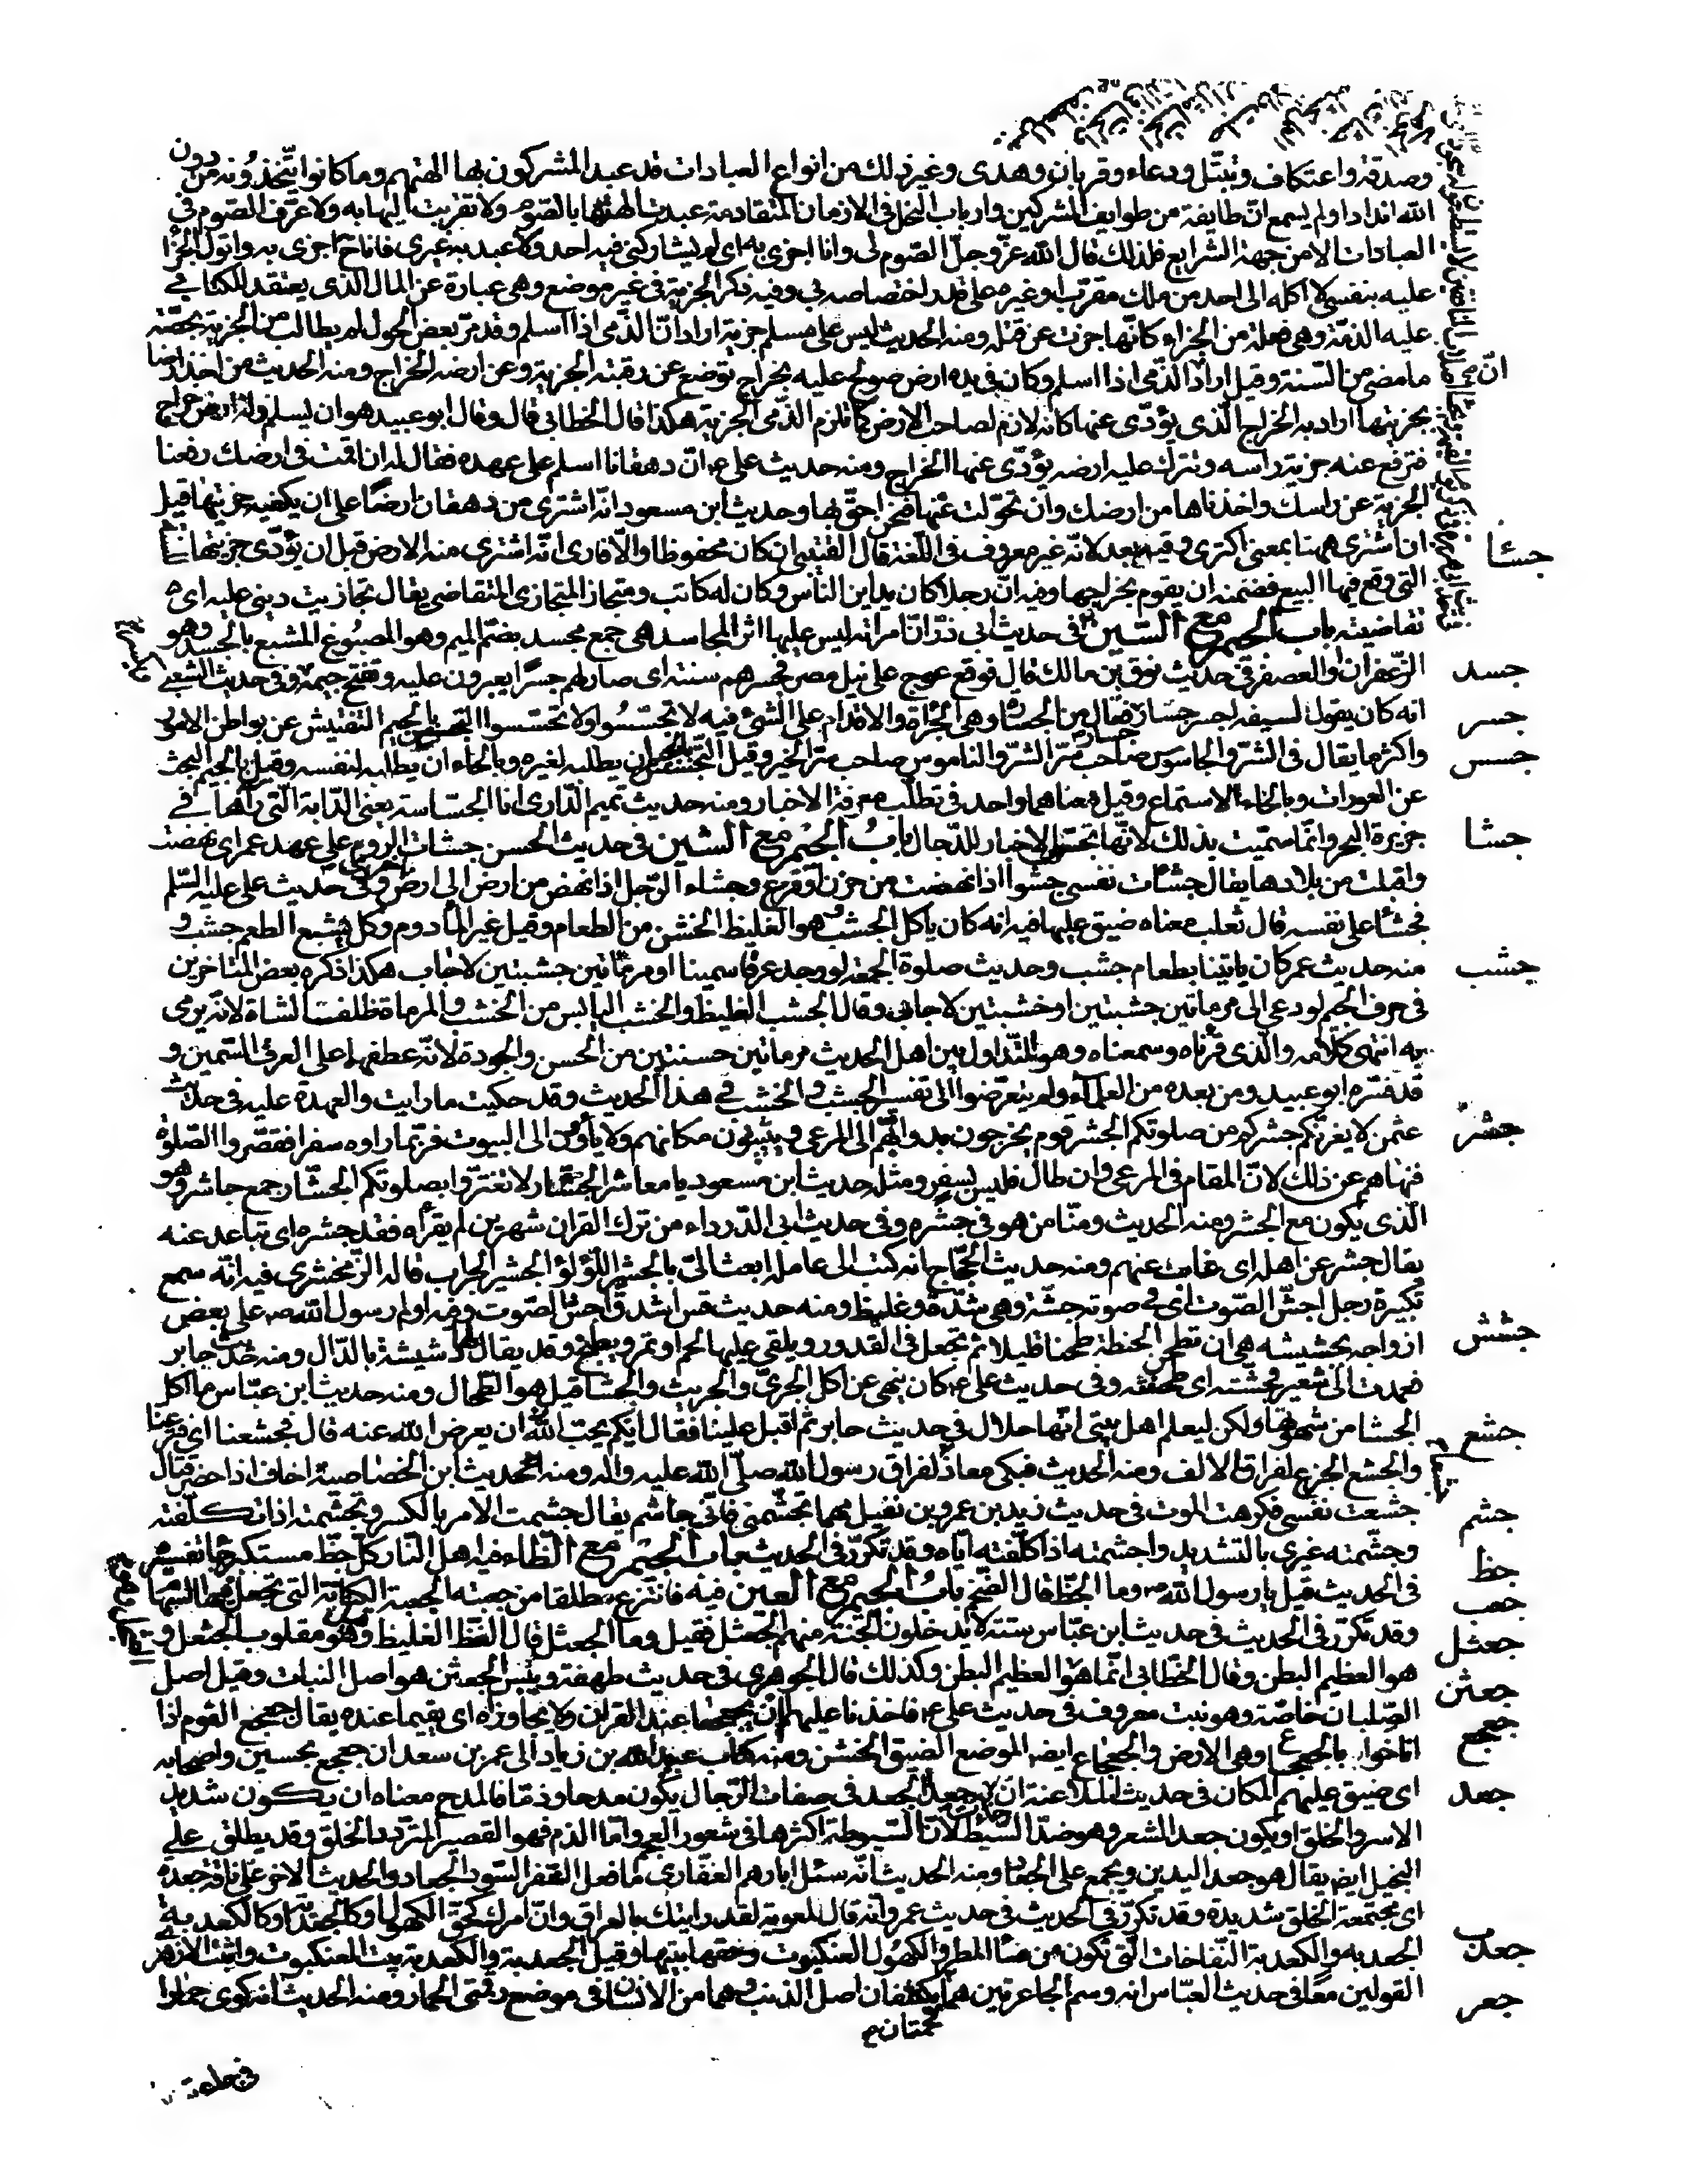 وصدقة واعتكاف وتبتّل ودعاء وقربان وهدى وغير ذلك من انواع العبادات قد عبد المشركون بها الهتهم وما كانوا يتّخذونه من دون
الله اندادا ولم يسمع انّ طايفة من طوايف المشركين وارباب النحل فى الازمان المتقادمة عبدت الهتها بالصّوم ولا تقرّبت اليها به ولا عرف الصّوم فى
العبادات الا من جهة الشرايع فلذلك قال الله عزّ وجلّ الصّوم لى وانا اجزى به اى لم يشاركنى فيه احد ولا عبد به غيرى فانا ح اجزى به واتولّى الجزاء
عليه بنفسى لا اكله الى احد من ملك مقرّب او غيره على قدر اختصاصه بى وفيه ذكر الجزية فى غير موضع وهى عبارة عن المال الذى يعتقد الكتابى
عليه الذمّة وهى فعلة من الجزاء كانّها جزت عن قتله ومنه الحديث ليس على مسلم جزية اراد انّ الذّمى اذا اسلم وقد مرّ بعض الحول لم يطالب من الجزية بحصّة
ما مضى من السّنة وقيل اراد انّ الذّمى اذا اسلم وكان فى يده ارض صولح عليه بخراج توضع عن رقبته الجزية وعن ارضه الخراج ومنه الحديث من اخذ ارضا
بجزيتها اراد به الخراج الّذى يؤدّى عنها كانّه لازم لصاحب الارض كما تلزم الذّمى الجزية هكذا قال الخطابى قال وقال ابو عبيد هو ان يسلم وله ارض خراج
فترفع عنه جزية راسه وتترك عليه ارضه يؤدّى عنها الخراج ومنه حديث على ع انّ دهقانا اسلم على عهده فقال له ان اقمت فى ارضك رفعنا
الجزية عن راسك واخذناها من ارضك وان تحوّلت عنها فنحن احقّ بها وحديث ابن مسعود انّه اشترى من دهقان ارضًا على ان يكفيه جزيتها قيل
ان اشترى ههنا بمعنى اكترى وفيه بعد لانّه غير معروف فى اللّغة قال القتيبى ان كان محفوظا والّا فارى انّه اشترى منه الارض قبل ان يؤدّى جزيتها
التى وقع فيها البيع فضمنه ان يقوم بخراجها وفيه انّ رجلا كان يداين النّاس وكان له كاتب ومتجاز المتجازى المتقاضى يقال تجازيت دينى عليه اى
تقاضيته باب الجيم مع السّين فى حديث ابى ذرّ انّ امراته ليس عليها اثر المجاسد هى جمع مجسد بضمّ الميم وهو المصبوغ المشبع بالجسد وهو
الزّعفران او العصفر فى حديث نوف بن مالك قال فوقع عوج على نيل مصر فجسرهم سنة اى صار لهم جسرًا يعبرون عليه وتفتح جيمه وفى حديث الشعبى
انه كان يقول لسيفه اجسر جسّار فعّال من الجسارة وهى الجراة والاقدام على الشئ فيه لا تجسّسوا ولا تحسّسوا التجسّس بالجيم التفتيش عن بواطن الامور
واكثر ما يقال فى الشرّ والجاسوس صاحب سرّ الشرّ والناموس صاحب سرّ الخير وقيل التجسّس ان يطلبه لغيره وبالحاء ان يطلبه لنفسه وقيل بالجيم البحث
عن العورات وبالحاء الاستماع وقيل معناهما واحد فى تطلّب معرفة الاخبار ومنه حديث تميم الدّارى انا الجسّاسة يعنى الدّابة الّتى رآها فى
جزيرة البحر وانّما سمّيت بذلك لانّها تجسّ الاخبار للدّجال باب الجيم مع الشين فى حديث الحسن جشات الروم على عهد عمر اى نهضت
واقبلت من بلادها يقال جشات نفسى جشوا اذا نهضت من حزن او فزع وجشاء الرّجل اذا نهض من ارض الى ارض وفى حديث على عليه السّلم
فجشا على نفسه قال ثعلب معناه ضيق عليها فيه انه كان ياكل الجشب هو الغليظ الخشن من الطعام وقيل غير المأدوم وكل بشع الطعم جشب و
منه حديث عمر كان ياتينا بطعام جشب وحديث صلوة الجمعة لو وجد عرقا سمينا او مرماتين جشبتين لاجاب هكذا ذكره بعض المتاخرين
فى حرف الجيم لو دعى الى مرماتين جشبتين او خشبتين لاجاب وقال الجشب الغليظ والخشب اليابس من الخشب والمرماة ظلف الشاة لانّه يرمى
به انتهى كلامه والّذى قرأناه وسمعناه وهو المتداول بين اهل الحديث مرماتين حسنتين من الحسن والجودة لانّه عطفهما على العرق السّمين و
قد فسّره ابو عبيد ومن بعده من العلماء ولم يتعرّضوا الى تفسير الجشب والخشب فى هذا الحديث وقد حكيت ما رايت والعهدة عليه فى حديث
عثمن لا يغرّنّكم جشركم من صلوتكم الجشر قوم يخرجون بدوابّهم الى المرعى ويبيتون مكانهم ولا ياوون الى البيوت فربّما راوه سفرا فقصروا الصّلوة
فنهاهم عن ذلك لانّ المقام فى المرعى وان طال فليس بسفر ومثله حديث ابن مسعود يا معاشر الجشّار لا تغترّوا بصلوتكم الجشّار جمع جاشر وهو
الّذى يكون مع الجشر ومنه الحديث ومنّا من هو فى جشره وفى حديث ابى الدّرداء من ترك القران شهرين لم يقرأه فقد جشره اى تباعد عنه
يقال جشر عن اهله اى غاب عنهم ومنه حديث الحجّاج انه كتب الى عامله ابعث الىّ بالجشير اللؤلؤ الجشير الجراب قاله الزّمخشرى فيه انّه سمع
تكبيرة رجل اجشّ الصّوت اى فى صوته جشّة وهى شدّة وغلظ ومنه حديث قس اشدق اجشّ الصّوت وفيه اولم رسول الله ص على بعض
ازواجه بجشيشه هى ان تطحن الحنطة طحنا قليلا ثم تجعل فى القدور ويلقى عليها لحم او تمر ويطبخ وقد يقال لها دشيشة بالدّال ومنه حديث جابر
فعمدت الى شعير فجشّته اى طحنته وفى حديث على ع كان ينهى عن اكل الجرّى والجريث والجشا قيل هو الطّحال ومنه حديث ابن عبّاس ما اكل
الجشا من شهوتها ولكن ليعلم اهل بيتى انّها حلال فى حديث جابر ثم اقبل علينا فقال ايّكم يحبّ ان يعرض الله عنه قال فجشعنا اى فزعنا
والجشع الجزع لفراق الالف ومنه الحديث فبكى معاذ جشعا لفراق رسول الله صلّى الله عليه واله ومنه حديث ابن الخصاصية اخاف اذا حضر قتال
جشعت نفسى فكرهت الموت فى حديث زيد بن عمرو بن نفيل مهما تجشّمنى فانّى جاشم يقال جشمت الامر بالكسر وتجشمته اذا تكلّفته
وجشّمته غيرى بالتشديد واجشمته اذا كلّفته ايّاه وقد تكرّر فى الحديث باب الجيم مع الظّاء فيه اهل النّار كلّ جظّ مستكبر جاء تفسيره
فى الحديث قيل يا رسول الله وما الجظّ قال الضّخم باب الجيم مع العين فيه فانتزع مطلقا من جعبته الجعبة الكنانة التى تجعل فيها السّهام
وقد تكرّر فى الحديث فى حديث ابن عبّاس ستة لا يدخلون الجنّة منهم الجعثل فقيل وما الجعثل قال الفظّ الغليظ وهو مقلوب الجثعل و
هو العظيم البطن وقال الخطّابى انّما هو العظيم البطن وكذلك قال الجوهرى فى حديث طهفة ويبس الجعثن هو اصل النبات وقيل اصل
الصّليان خاصّة وهو نبت معروف فى حديث على ع فاخذنا عليهما ان يجعجعا عند القران ولا يجاوزاه اى يقيما عنده يقال جعجع القوم اذا
اناخوا بالجعجاع وهى الارض والجعجاع ايضا الموضع الضيق الخشن ومنه كتاب عبيد الله بن زياد الى عمر بن سعد ان جعجع بحسين واصحابه
اى ضيق عليهم المكان فى حديث الملاعنة ان جاءت به جعدا الجعد فى صفات الرّجال يكون مدحا وذمّا فالمدح معناه ان يكون شديد
الاسر والخلق او يكون جعد الشعر وهو ضدّ السّبط لانّ السّبوطة اكثرها فى شعور العجم وامّا الذم فهو القصير المتردّد الخلق وقد يطلق على
البخيل ايضا يقال هو جعد اليدين ويجمع على الجعاد ومنه الحديث انّه سئل ابا رهم الغفّارى ما فعل النفر السّود الجعاد والحديث الاخر على ناقة جعدة
اى مجتمعة الخلق شديدة وقد تكرّر فى الحديث فى حديث عمرو انّه قال لمعوية لقد رايتك بالعراق وانّ امرك كحقّ الكهول او كالجعدبة او كالكعدبة
الجعدبة والكعدبة النّفاخات التى تكون من ماء المطر والكهول العنكبوت وحقها بيتها وقيل الجعدبة والكعدبة بيت العنكبوت واثبت الازهرى
القولين معًا فى حديث العبّاس انه وسم الجاعرتين هما لحمتان تكتنفان اصل الذنب وهما من الانسان فى موضع رقمتى الحمار ومنه الحديث انه كوى حمارا
جسا
جسد
جسر
جسس
جشا
جشب
جشر
جشش
جشع
جشم
جظ
جعب
جعثل
جعثن
جعجع
جعد
جعدب
جعر